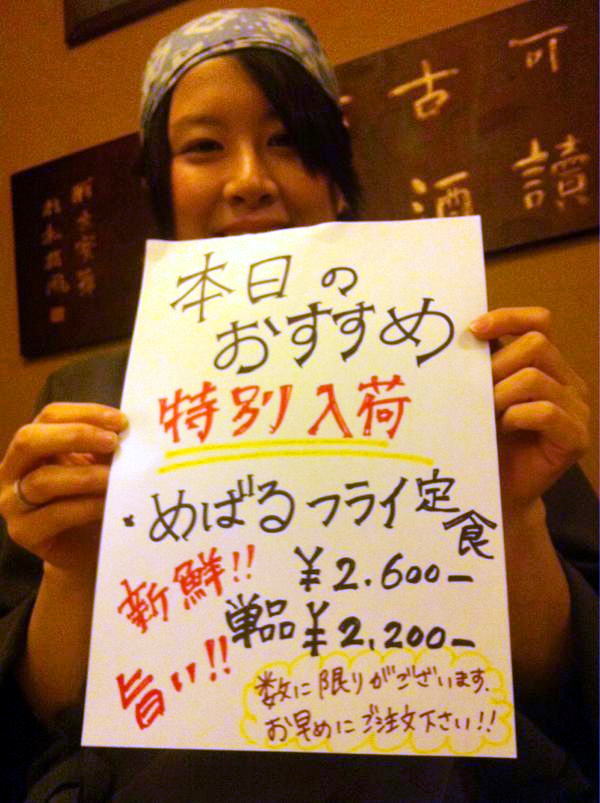 可
讀
古
酒
本日の
おすすめ
特別入荷
・めばるフライ定食
新鮮!! ¥2.600-
単品 ¥2,200-
旨い!!
数に限りがございます.
お早めにご注文下さい!!